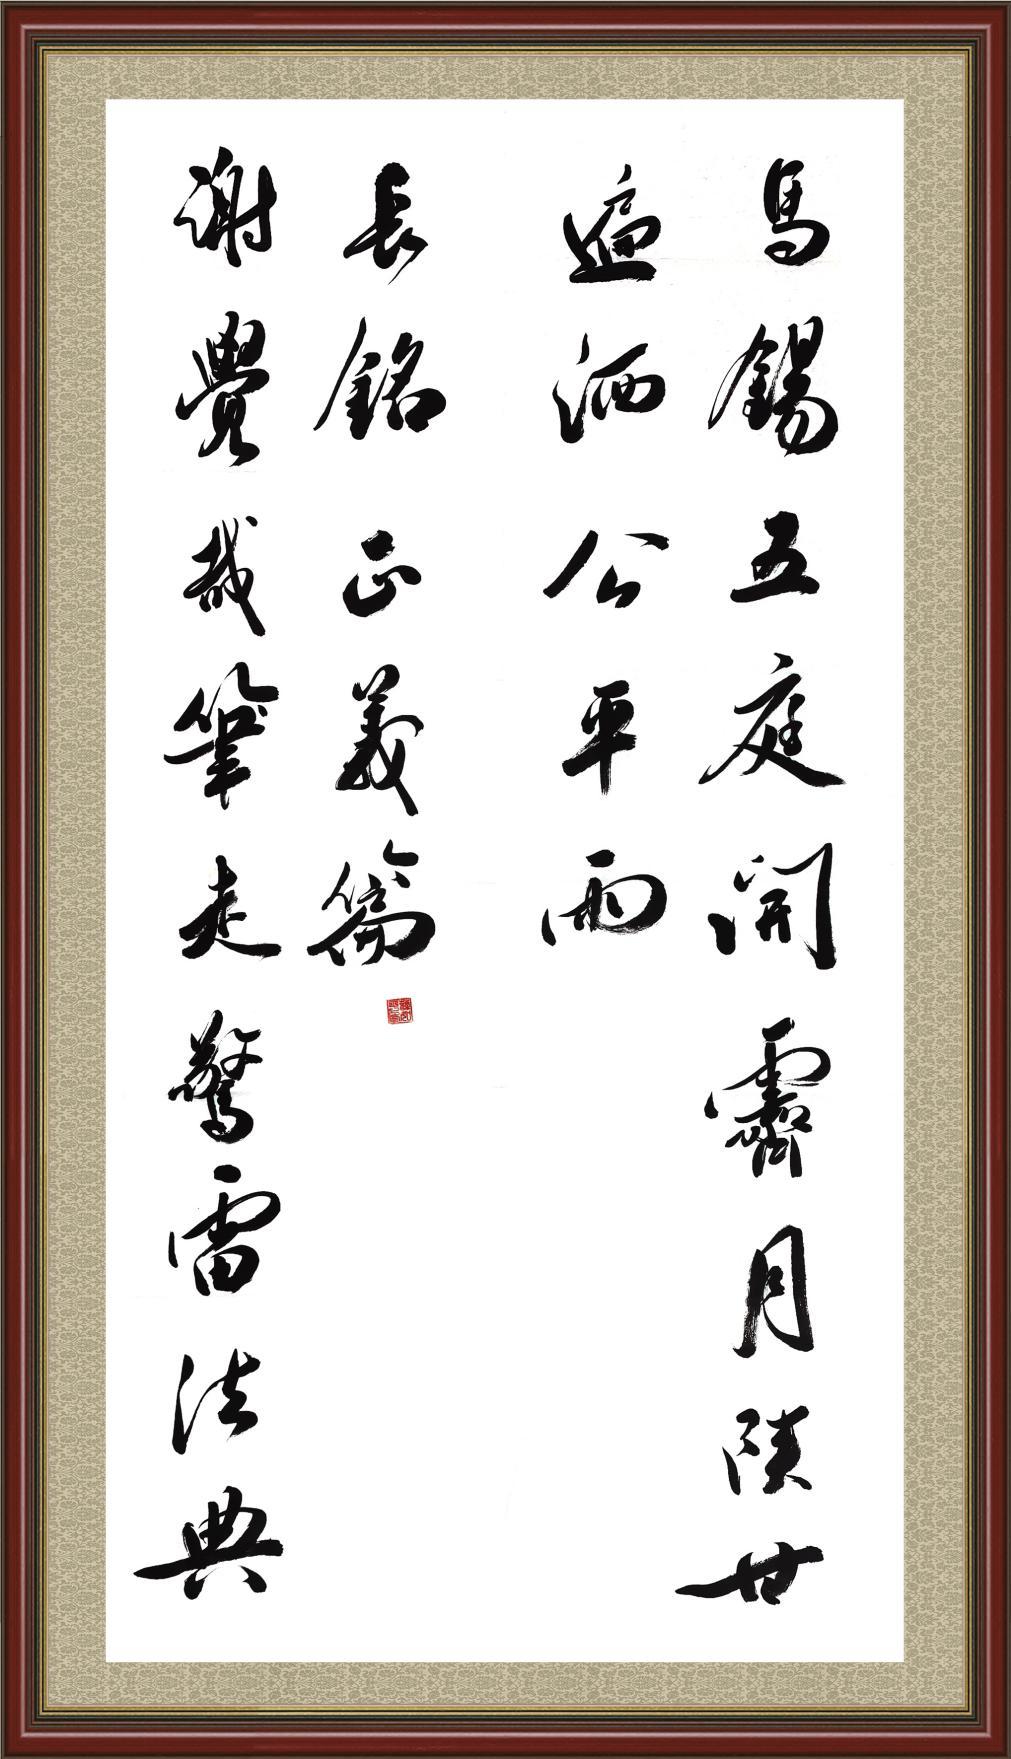 馬錫五庭開霽月陝甘
遍洒公平雨
謝覺哉筆走驚雷法典
長銘正義篇